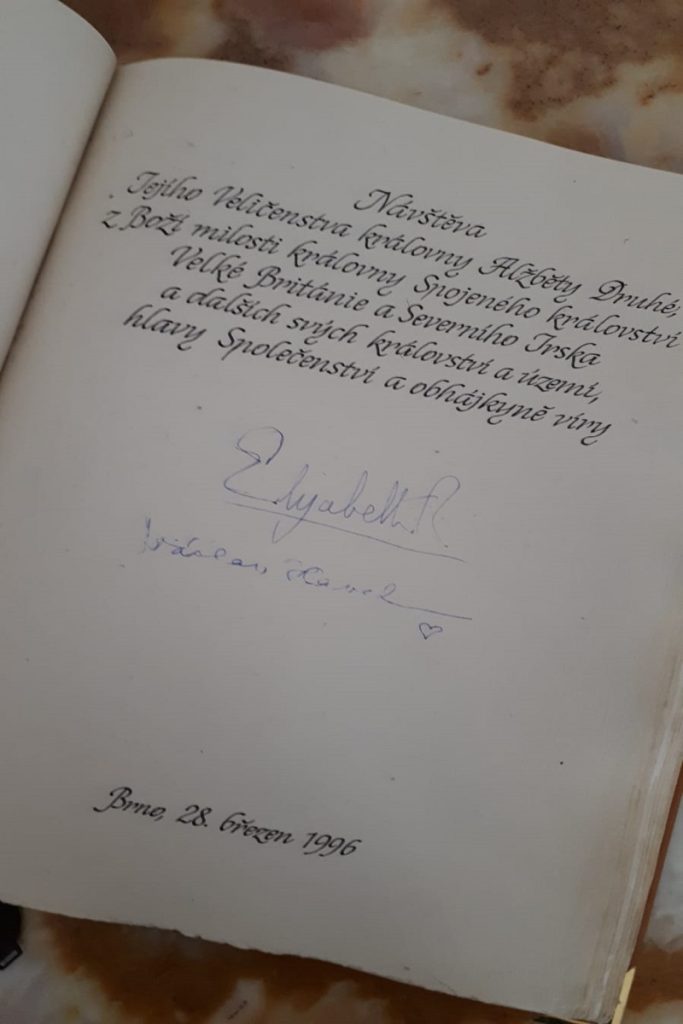 Návštěva
Jejího Veličenstva královny Alžběty Druhé,
z Boží milosti královny Spojeného království
Velké Británie a Severního Irska
a dalších svých království a území,
hlavy Společenství a obhájkyně víry
Elizabeth R.
Václav Havel
Brno, 28. březen 1996